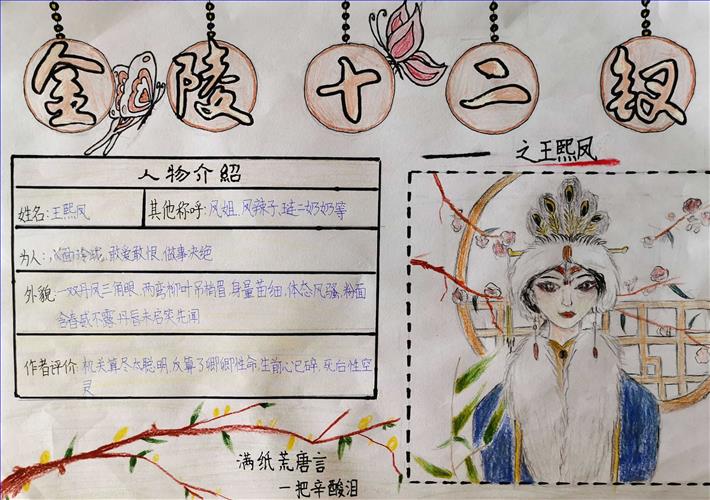 金陵十二钗
——之王熙凤
人物介紹
姓名:王熙凤
其他称呼:凤姐、凤辣子、琏二奶奶等
为人:心面冷珑、敢爱敢恨、做事决绝
外貌:一双丹凤三角眼,两弯柳叶吊梢眉,身量苗细,体态风骚,粉面
含春威不露,丹唇未启笑先闻
作者评价:机关算尽太聪明,反算了卿卿性命,生前心已碎,死后性空
灵
满纸荒唐言
一把辛酸泪